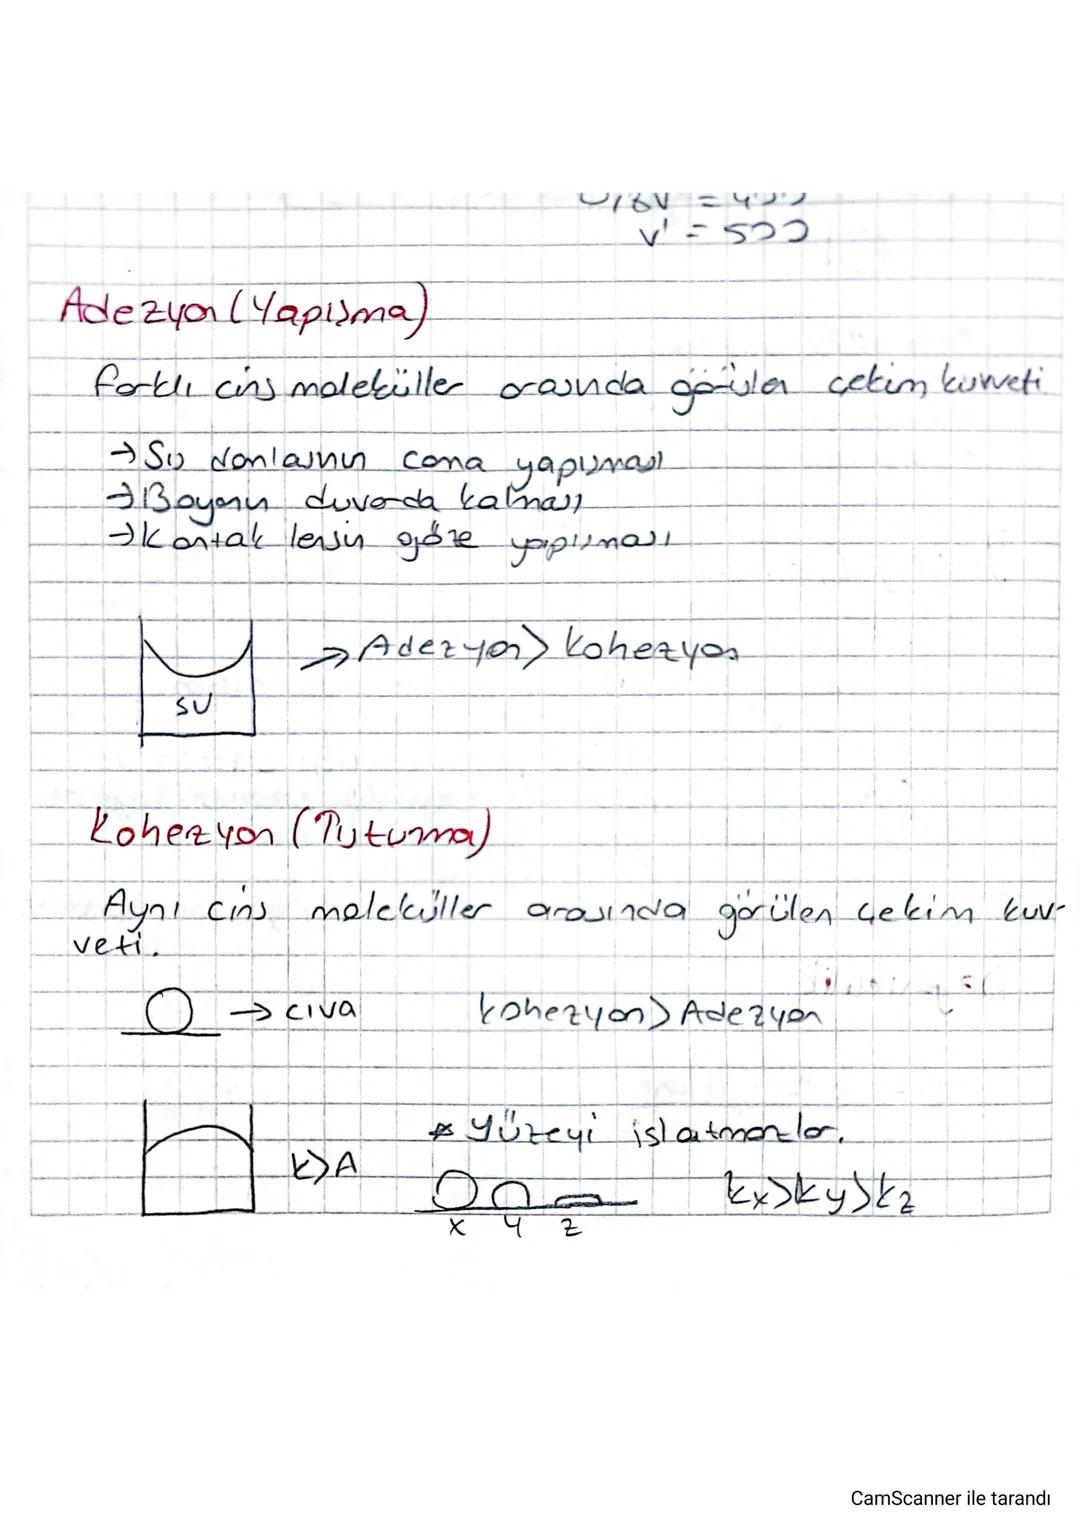 V' = 500
Adezyon (Yapışma)
farklı cins moleküller arasında görülen çekim kuvveti
→ Su damlasının cama yapışması
→ Boyanın duvarda kalması
→ Kontak lensin göze yapışması
SU
→ Adezyon > Kohezyon
Kohezyon (Tutunma)
Aynı cins moleküller arasında görülen çekim kuv-
veti.
→ civa
Kohezyon > Adezyon
* Yüzeyi ıslatmazlar.
K > A
kx > ky > kz
x y z
CamScanner ile tarandı